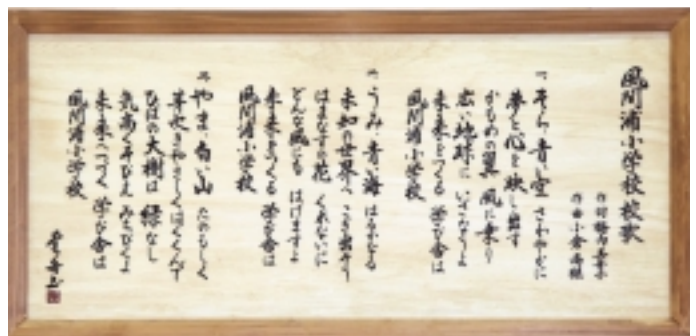 風間浦小学校校歌
作詞
作曲 小倉尚継
一、そら 青い空 さわやかに
夢と心を 映し出す
かもめの翼 風に乗り
広い地球に いざなうよ
未来をつくる 学び舎は
風間浦小学校
二、うみ 青い海 はるかなる
未知の世界へ こぎ出そう
はまなすの花 くれないに
どんな風にも はげまずよ
未来をつくる 学び舎は
風間浦小学校
三、やま 白い山 たのもしく
草木をやさしく はぐくんで
ひばの大樹は 緑なし
気高くそびえ みちびくよ
未来へつづく 学び舎は
風間浦小学校